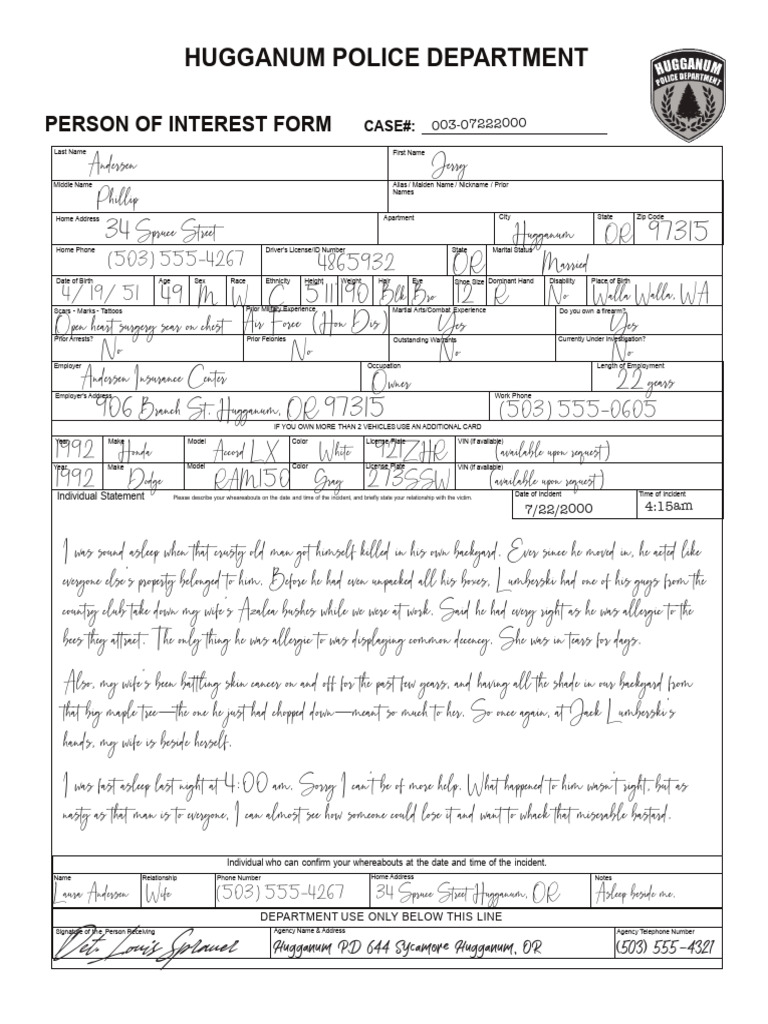 HUGGANUM POLICE DEPARTMENT
HUGGANUM
POLICE DEPARTMENT
PERSON OF INTEREST FORM CASE#: 003-07222000
Last Name Andersen First Name Jerry
Middle Name Phillip Alias / Maiden Name / Nickname / Prior Names
Home Address 34 Spruce Street Apartment City Hugganum State OR Zip Code 97315
Home Phone (503) 555-4267 Driver's License/ID Number 4865932 State OR Marital Status Married
Date of Birth 4/19/51 Age 49 Sex M Race W Ethnicity C Height 511 Weight 190 Hair Blk Eye Bro Shoe Size 12 Dominant Hand R Disability No Place of Birth Walla Walla, WA
Scars - Marks - Tattoos Open heart surgery scar on chest Prior Military Experience Air Force (Hon Dis) Martial Arts/Combat Experience Yes Do you own a firearm? Yes
Prior Arrests? No Prior Felonies No Outstanding Warrants No Currently Under Investigation? No
Employer Andersen Insurance Center Occupation Owner Length of Employment 22 years
Employer's Address 906 Branch St. Hugganum, OR 97315 Work Phone (503) 555-0605
IF YOU OWN MORE THAN 2 VEHICLES USE AN ADDITIONAL CARD
Year 1992 Make Honda Model Accord LX Color White License Plate 921ZHR VIN (if available) (available upon request)
Year 1992 Make Dodge Model RAM150 Color Gray License Plate 273SSW VIN (if available) (available upon request)
Individual Statement Please describe your whereabouts on the date and time of the incident, and briefly state your relationship with the victim. Date of Incident 7/22/2000 Time of Incident 4:15am
I was sound asleep when that crusty old man got himself killed in his own backyard. Ever since he moved in, he acted like
everyone else's property belonged to him. Before he had even unpacked all his boxes, Lumberski had one of his guys from the
country club take down my wife's Azalea bushes while we were at work. Said he had every right as he was allergic to the
bees they attract. The only thing he was allergic to was displaying common decency. She was in tears for days.
Also, my wife's been battling skin cancer on and off for the past few years, and having all the shade in our backyard from
that big maple tree—the one he just had chopped down—meant so much to her. So once again, at Jack Lumberski's
hands, my wife is beside herself.
I was fast asleep last night at 4:00 am. Sorry I can't be of more help. What happened to him wasn't right, but as
nasty as that man is to everyone, I can almost see how someone could lose it and want to whack that miserable bastard.
Individual who can confirm your whereabouts at the date and time of the incident.
Name Laura Andersen Relationship Wife Phone Number (503) 555-4267 Home Address 34 Spruce Street Hugganum, OR Notes Asleep beside me.
DEPARTMENT USE ONLY BELOW THIS LINE
Signature of the Person Receiving Det. Louis Sprauel Agency Name & Address Hugganum PD 644 Sycamore Hugganum, OR Agency Telephone Number (503) 555-4321